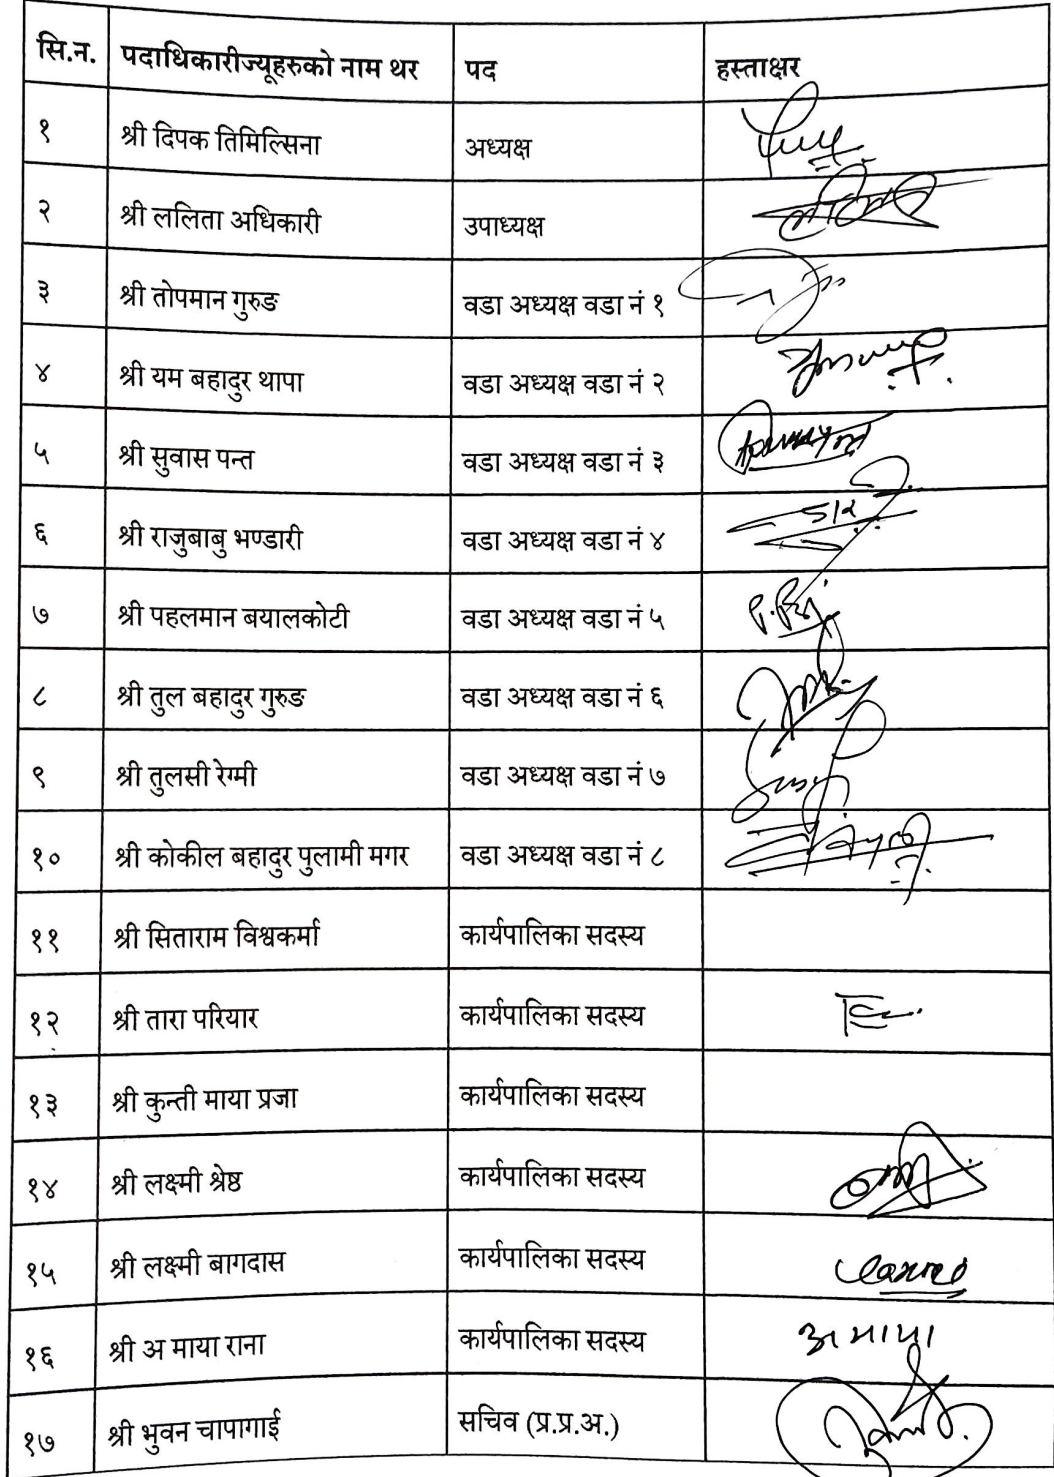 सि.न. पदाधिकारीज्यूहरुको नाम थर पद हस्ताक्षर
१ श्री दिपक तिमिल्सिना अध्यक्ष
२ श्री ललिता अधिकारी उपाध्यक्ष
३ श्री तोपमान गुरुङ वडा अध्यक्ष वडा नं १
४ श्री यम बहादुर थापा वडा अध्यक्ष वडा नं २
५ श्री सुवास पन्त वडा अध्यक्ष वडा नं ३
६ श्री राजुबाबु भण्डारी वडा अध्यक्ष वडा नं ४
७ श्री पहलमान बयालकोटी वडा अध्यक्ष वडा नं ५
८ श्री तुल बहादुर गुरुङ वडा अध्यक्ष वडा नं ६
९ श्री तुलसी रेग्मी वडा अध्यक्ष वडा नं ७
१० श्री कोकील बहादुर पुलामी मगर वडा अध्यक्ष वडा नं ८
११ श्री सिताराम विश्वकर्मा कार्यपालिका सदस्य
१२ श्री तारा परियार कार्यपालिका सदस्य
१३ श्री कुन्ती माया प्रजा कार्यपालिका सदस्य
१४ श्री लक्ष्मी श्रेष्ठ कार्यपालिका सदस्य
१५ श्री लक्ष्मी बागदास कार्यपालिका सदस्य
१६ श्री अ माया राना कार्यपालिका सदस्य अ माया
१७ श्री भुवन चापागाई सचिव (प्र.प्र.अ.)